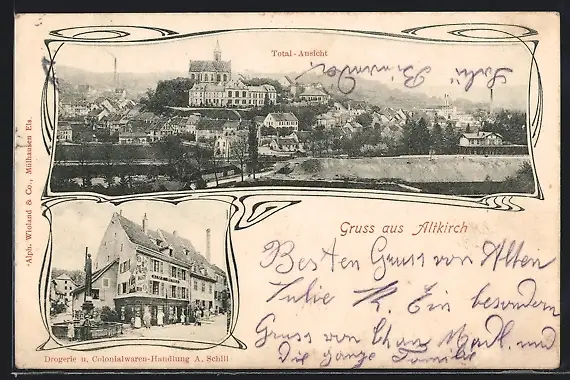 Total-Ansicht
Alph. Wioland & Co., Mülhausen Els.
Gruss aus Altkirch
Besten Gruss von Alten
Julie K. Ein besondern
Gruss von und
die ganze Familie
Drogerie u. Colonialwaren-Handlung A. Schill